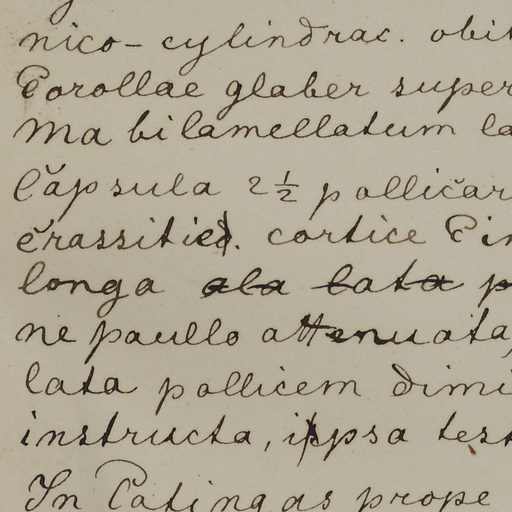 nico-cylindrac. obit
Corollae glaber super
ma bilamellatum la
Capsula 2½ pollicar
crassitied. cortice Cin
longa ala lata p
ne paullo attenuata,
lata pollicem dimi
instructa, ipsa test
In Catingas prope